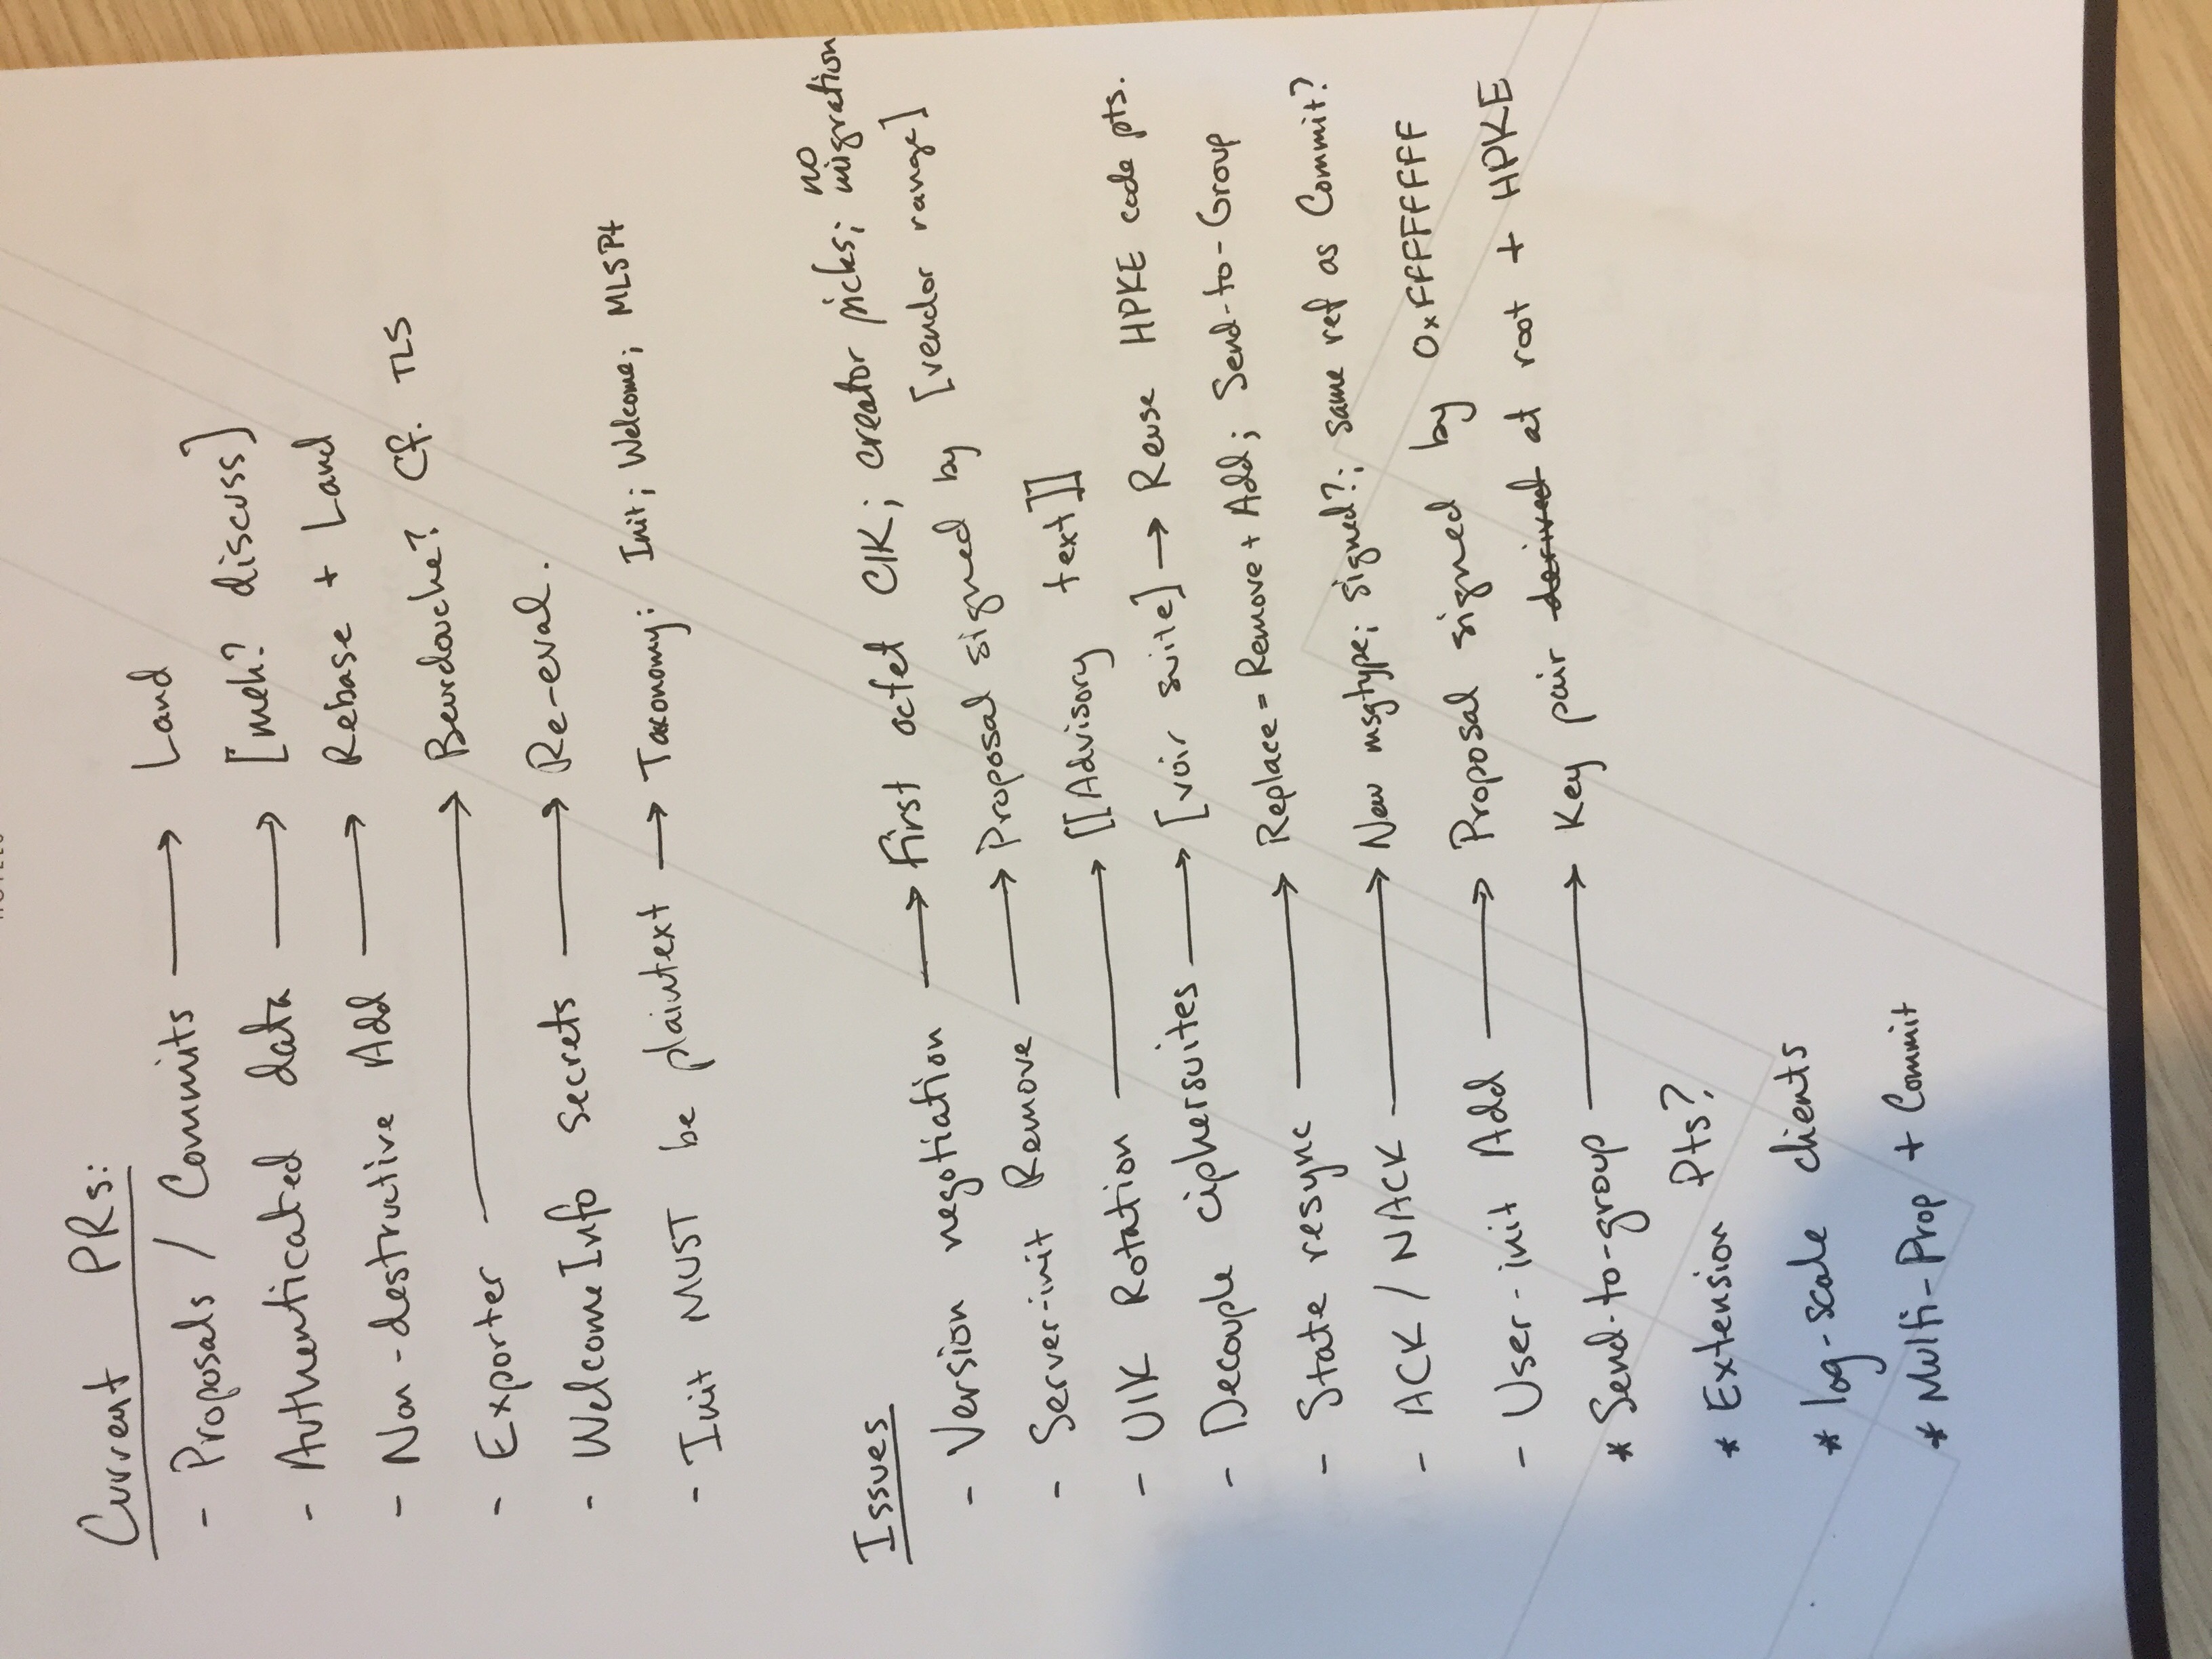 HOTELS
Current PRs:
- Proposals / Commits → Land
- Authenticated data → [meh? discuss]
- Non-destructive Add → Rebase + Land
- Exporter → Beurdouche? Cf. TLS
- WelcomeInfo secrets → Re-eval.
- Init MUST be plaintext → Taxonomy: Init; Welcome; MLSPt
Issues
- Version negotiation → First octet CIK; creator picks; no migration
- Server-init Remove → Proposal signed by [vendor range]
- UIK Rotation → [[Advisory text]]
- Decouple ciphersuites → [voir suite] → Reuse HPKE code pts.
- State resync → Replace = Remove + Add; Send-to-Group
- ACK / NACK → New msgtype; signed?; same ref as Commit?
- User-init Add → Proposal signed by 0xFFFFFFFF
* Send-to-group → Key pair derived at root + HPKE
* Extension Pts?
* log-scale clients
* Multi-Prop + Commit